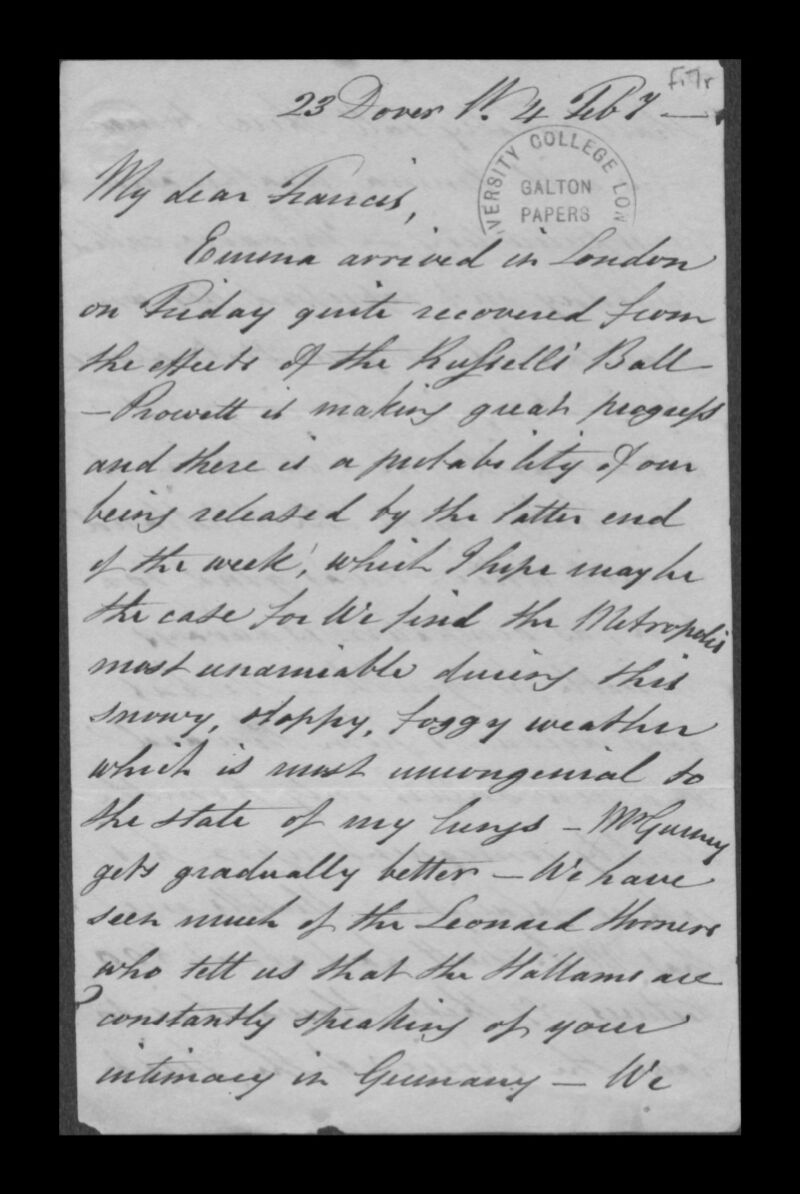 F: T: r
23 Dover St. 4 Feby —
UNIVERSITY COLLEGE LON
GALTON
PAPERS
My dear Francis,
Emma arrived in London
on Friday quite recovered from
the effects of the Russells Ball
— Prowett is making great progress
and there is a probability of our
being released by the latter end
of the week, which I hope may be
the case for We find the Metropolis
most unamiable during this
snowy, sloppy, foggy weather
which is most uncongenial to
the state of my lungs — Mrs Gurney
gets gradually better — We have
seen much of the Leonard Horners
who tell us that the Hallams are
constantly speaking of your
intimacy in Germany — We